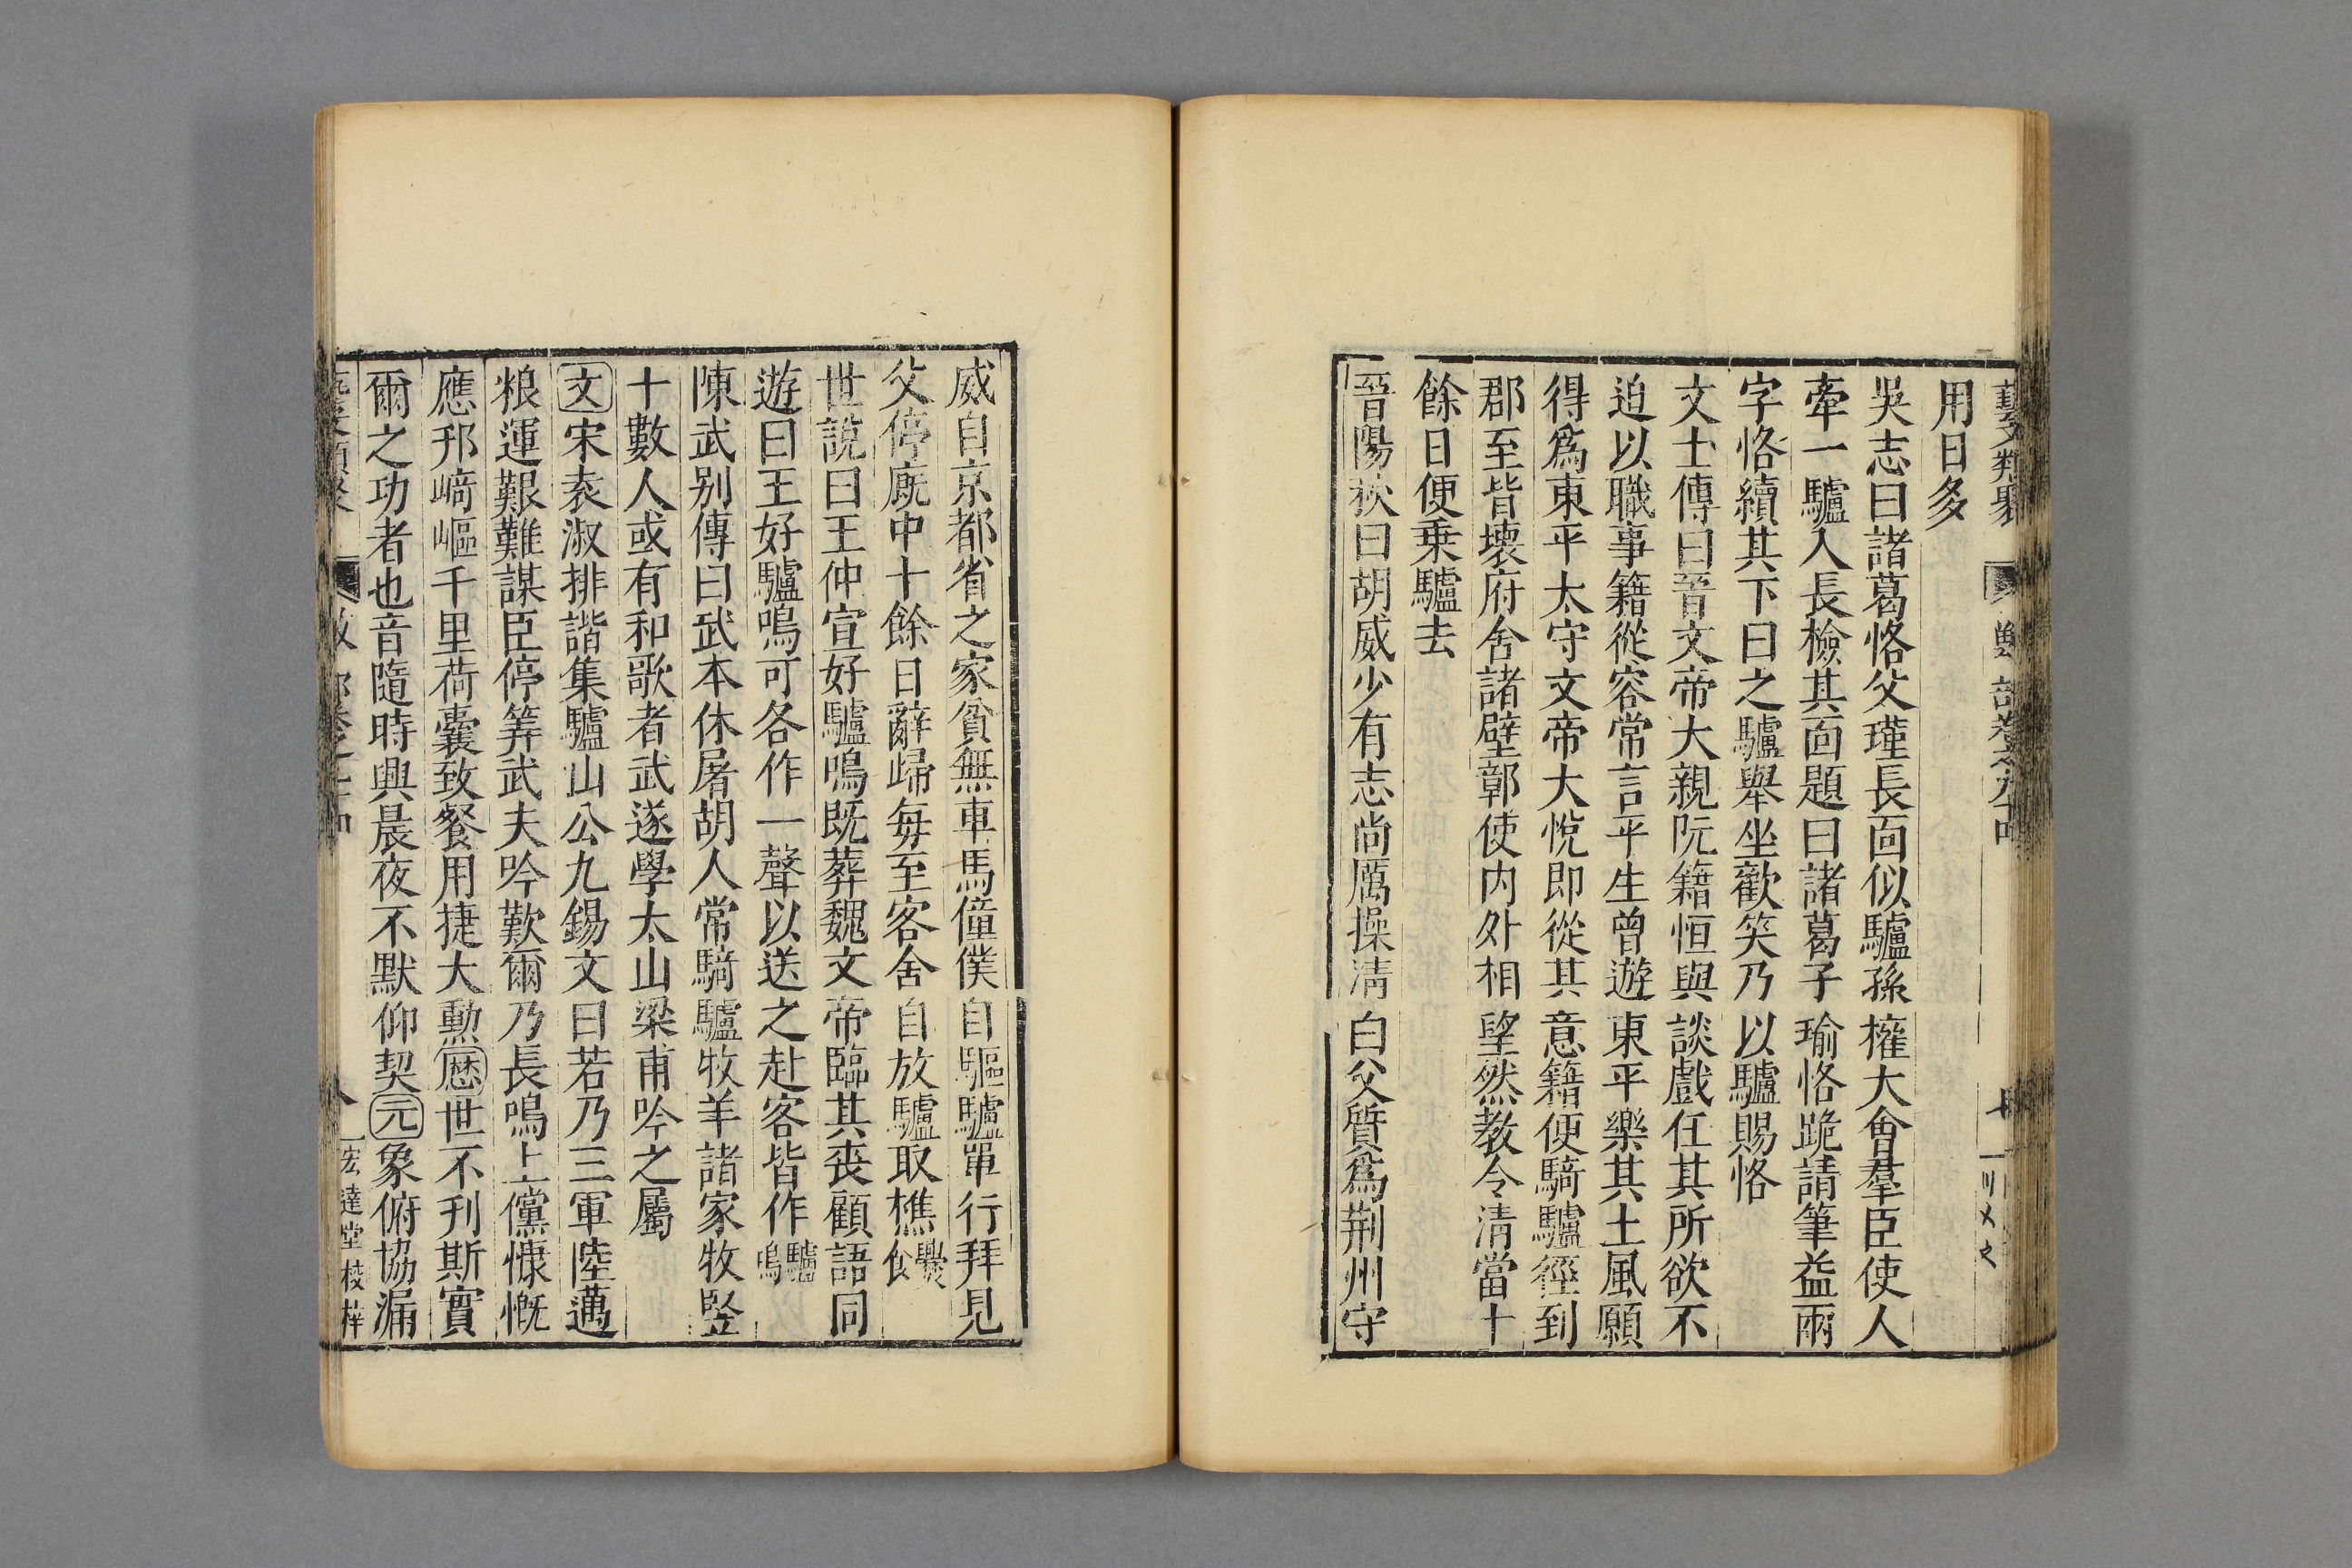 藝文類聚 獸部卷之九十四
用日多
吳志曰諸葛恪父瑾長面似驢孫權大會羣臣使人
牽一驢入長檢其面題曰諸葛子瑜恪跪請筆益兩
字恪續其下曰之驢舉坐歡笑乃以驢賜恪
文士傳曰晉文帝大親阮籍恒與談戲任其所欲不
迫以職事籍從容常言平生曾遊東平樂其土風願
得爲東平太守文帝大悅即從其意籍便騎驢徑到
郡至皆壞府舍諸壁鄣使内外相望然教令清當十
餘日便乗驢去
晉陽秋曰胡威少有志尚厲操清白父質爲荆州守
威自京都省之家貧無車馬僮僕自驅驢單行拜見
父停厩中十餘日辭歸毎至客舍自放驢取樵爨食
世説曰王仲宣好驢鳴既葬魏文帝臨其喪顧語同
遊曰王好驢鳴可各作一聲以送之赴客皆作驢鳴
陳武别傳曰武本休屠胡人常騎驢牧羊諸家牧竪
十數人或有和歌者武遂學太山梁甫吟之屬
文宋袁淑排諧集驢山公九錫文曰若乃三軍陸邁
粮運艱難謀臣停筭武夫吟歎爾乃長鳴上黨慷慨
應邘崎嶇千里荷囊致餐用捷大勲歷世不刊斯實
爾之功者也音隨時興晨夜不默仰契元象俯協漏
宏達堂校梓